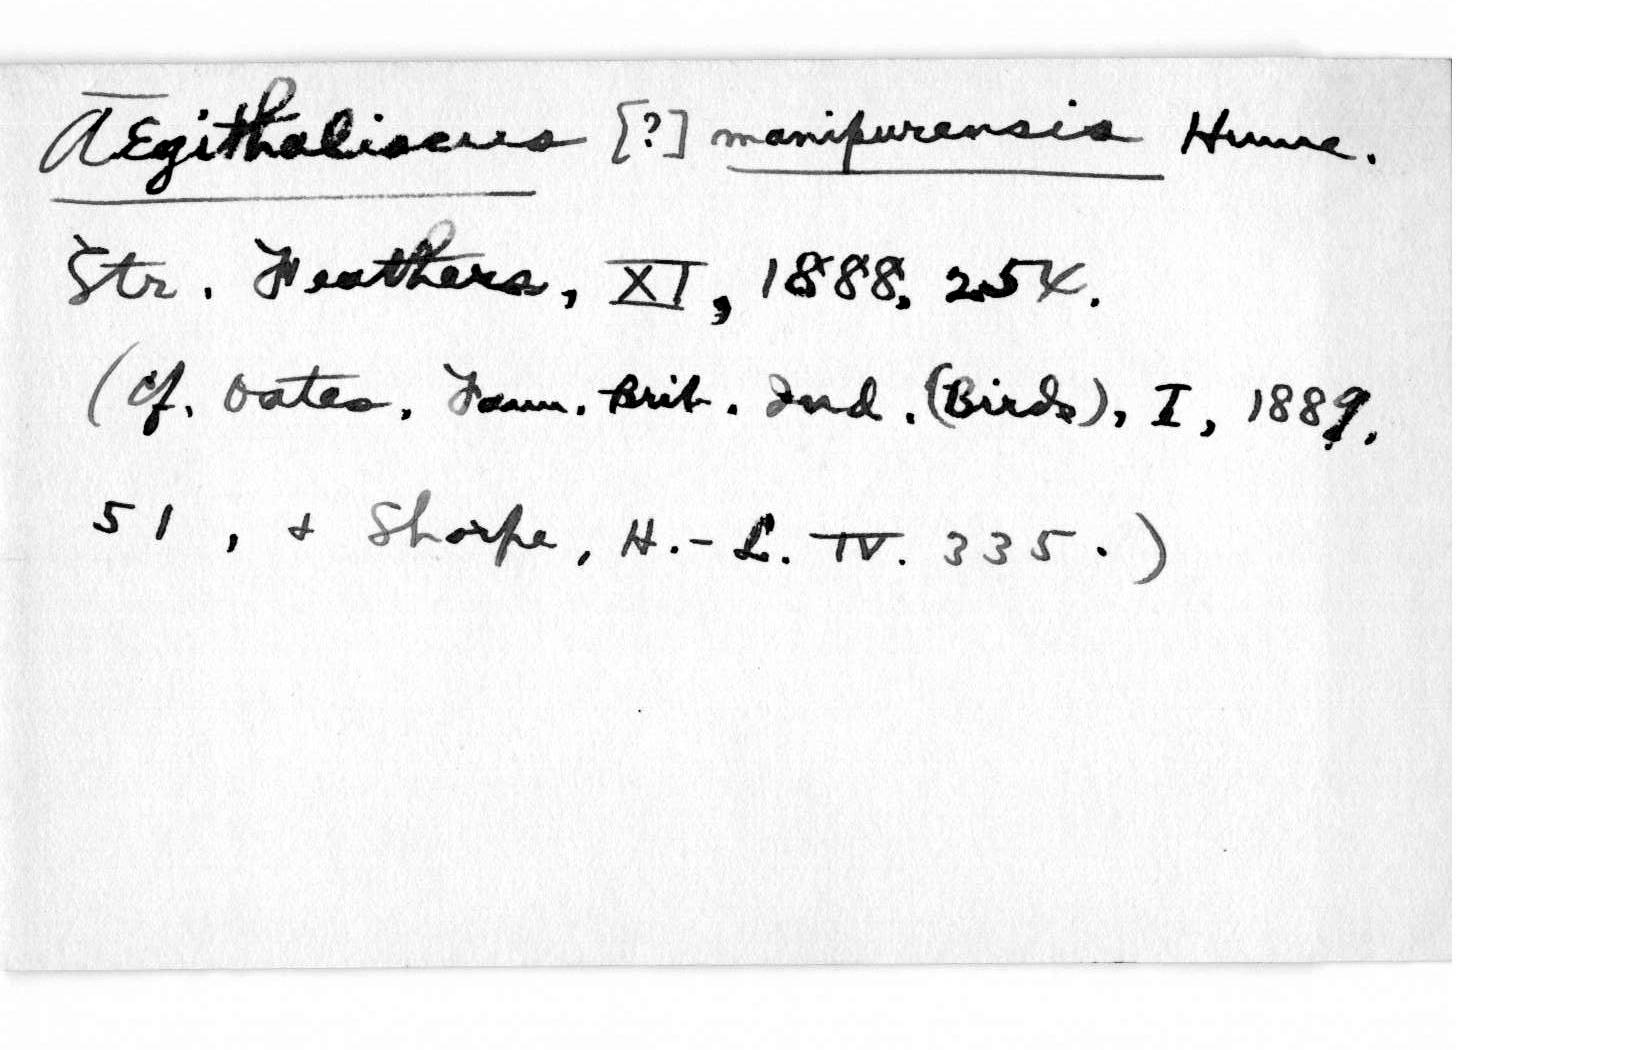 Ægithaliscus [?] manipurensis Hume.
Str. Feathers, XI, 1888, 254.
(Cf. Oates, Faun. Brit. Ind. (Birds), I, 1889,
51, & Sharpe, H.-L. IV. 335.)